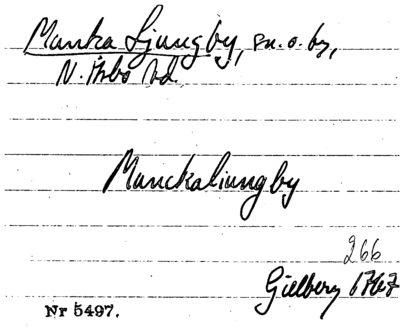 Manka Ljungby, sn. o. by,
N. Åsbo hd.
Munckaliungby
266
Gielberg 1767
Nr 5497.